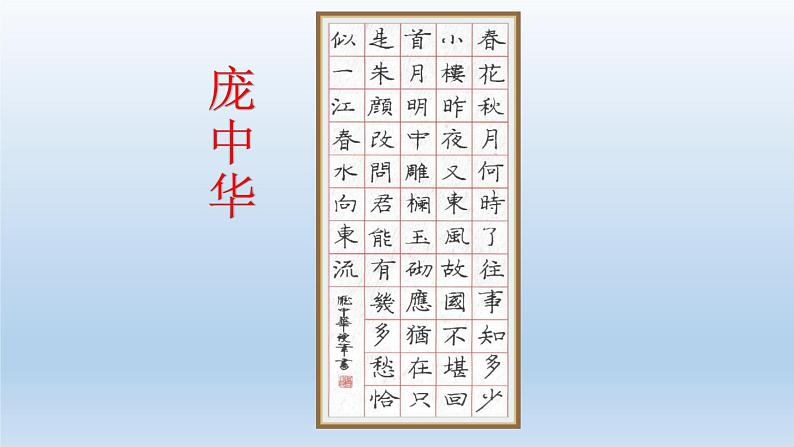 庞中华
春花秋月何時了往事知多少
小樓昨夜又東風故國不堪回
首月明中雕欄玉砌應猶在只
是朱顔改問君能有幾多愁恰
似一江春水向東流
龐中華硬筆書